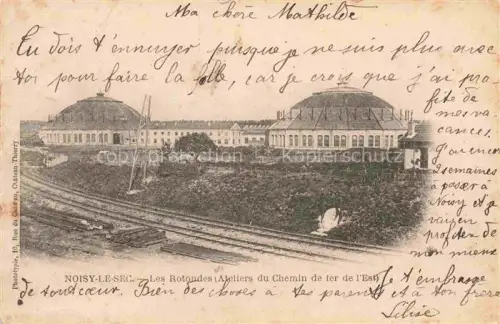 Ma chère Mathilde
Tu dois t'ennuyer puisque je ne suis plus avec
toi pour faire la folle, car je crois que j'ai pro
fité de mes va
cances.
J'ai encore
2 semaines
à passer à
Noisy et je
vais en
profiter de
mon mieux
NOISY-LE-SEC. — Les Rotondes (Ateliers du Chemin de fer de l'Est)
Je t'embrasse
de tout cœur. Bien des choses à tes parents et à ton frère
copyright kopierschutz